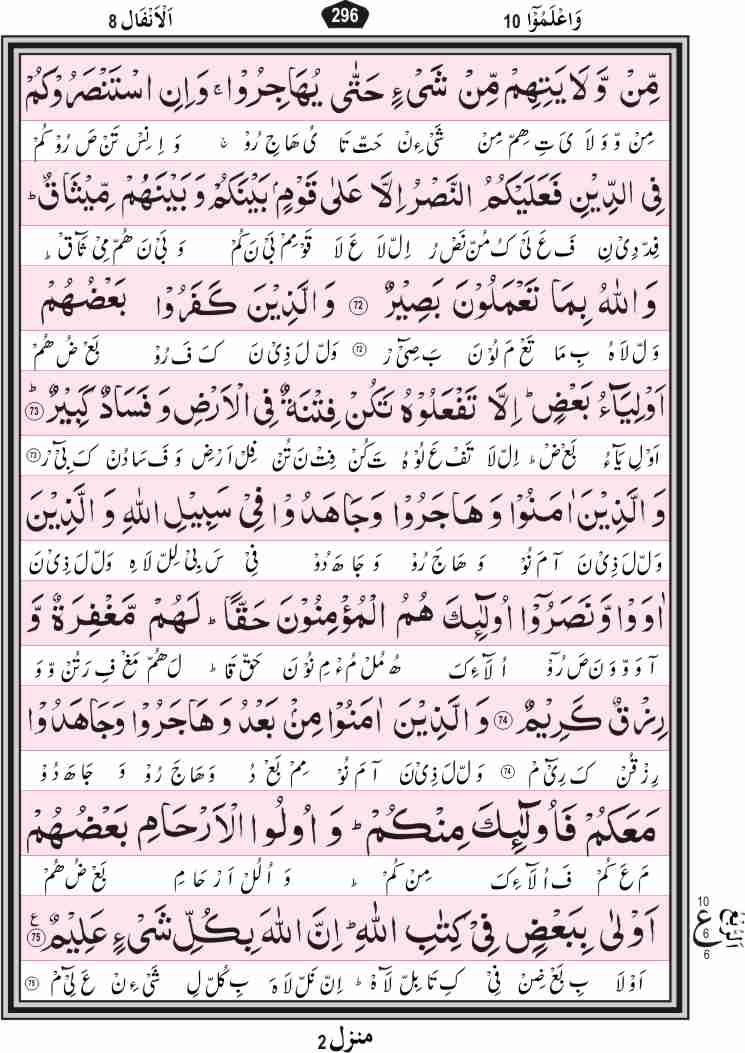 وَاعْلَمُوْٓا 10 296 اَلْاَنْفَال 8
مِّنْ وَّلَايَتِهِمْ مِّنْ شَىْءٍ حَتّٰى يُهَاجِرُوْا ۚ وَاِنِ اسْتَنْصَرُوْكُمْ
مِنْ وْ وَ لَا ىَ تِ هِمْ مِنْ شَىْ ءِنْ حَتْ تَا ىُ هَا جِ رُوْ ۚ وَ اِ نِسْ تَنْ صَ رُوْ كُمْ
فِى الدِّيْنِ فَعَلَيْكُمُ النَّصْرُ اِلَّا عَلٰى قَوْمٍۭ بَيْنَكُمْ وَ بَيْنَهُمْ مِّيْثَاقٌ ؕ
فِدْ دِىْ نِ فَ عَ لَىْ كُ مُنْ نَصْ رُ اِلْ لَا عَ لَا قَوْ مِمْ بَىْ نَ كُمْ وَ بَىْ نَ هُمْ مِىْ ثَاقْ ؕ
وَاللّٰهُ بِمَا تَعْمَلُوْنَ بَصِيْرٌ 72 وَالَّذِيْنَ كَفَرُوْا بَعْضُهُمْ
وَلْ لَا هُ بِ مَا تَعْ مَ لُوْ نَ بَ صِىْٓ رْ 72 وَلْ لَ ذِىْ نَ كَ فَ رُوْ بَعْ ضُ هُمْ
اَوْلِيَآءُ بَعْضٍ ؕ اِلَّا تَفْعَلُوْهُ تَكُنْ فِتْنَةٌ فِى الْاَرْضِ وَ فَسَادٌ كَبِيْرٌ ؕ 73
اَوْ لِ يَآ ءُ بَعْ ضْ ؕ اِلْ لَا تَفْ عَ لُوْ هُ تَ كُنْ فِتْ نَ تُنْ فِلْ اَرْ ضِ وَ فَ سَا دُنْ كَ بِىْٓ رْ 73
وَ الَّذِيْنَ اٰمَنُوْا وَ هَاجَرُوْا وَجَاهَدُوْا فِىْ سَبِيْلِ اللّٰهِ وَ الَّذِيْنَ
وَلْ لَ ذِىْ نَ آ مَ نُوْ وَ هَا جَ رُوْ وَ جَا هَ دُوْ فِىْ سَ بِىْ لِلْ لَا هِ وَلْ لَ ذِىْ نَ
اٰوَوْا وَّ نَصَرُوْۤا اُولٰٓئِكَ هُمُ الْمُؤْمِنُوْنَ حَقًّا ؕ لَهُمْ مَّغْفِرَةٌ وَّ
آ وَ وْ وَ نَ صَ رُوْٓ اُ لَآ ءِ كَ هُ مُلْ مُ ءْ مِ نُوْ نَ حَقْ قَا ؕ لَ هُمْ مَغْ فِ رَ تُنْ وْ وَ
رِزْقٌ كَرِيْمٌ 74 وَ الَّذِيْنَ اٰمَنُوْا مِنْۢ بَعْدُ وَ هَاجَرُوْا وَجَاهَدُوْا
رِزْ قُنْ كَ رِىْٓ مْ 74 وَلْ لَ ذِىْ نَ آ مَ نُوْ مِمْ بَعْ دُ وَ هَا جَ رُوْ وَ جَا هَ دُوْ
مَعَكُمْ فَاُولٰٓئِكَ مِنْكُمْ ؕ وَ اُولُوا الْاَرْحَامِ بَعْضُهُمْ
مَ عَ كُمْ فَ اُ لَآ ءِ كَ مِنْ كُمْ ؕ وَ اُ لُلْ اَرْ حَا مِ بَعْ ضُ هُمْ
اَوْلٰى بِبَعْضٍ فِىْ كِتٰبِ اللّٰهِ ؕ اِنَّ اللّٰهَ بِكُلِّ شَىْءٍ عَلِيْمٌ 75 ع
اَوْ لَا بِ بَعْ ضِنْ فِىْ كِ تَا بِلْ لَآ هْ ؕ اِنْ نَلْ لَا هَ بِ كُلْ لِ شَىْ ءِنْ عَ لِىْٓ مْ 75
10
ع 6
6
منزل 2